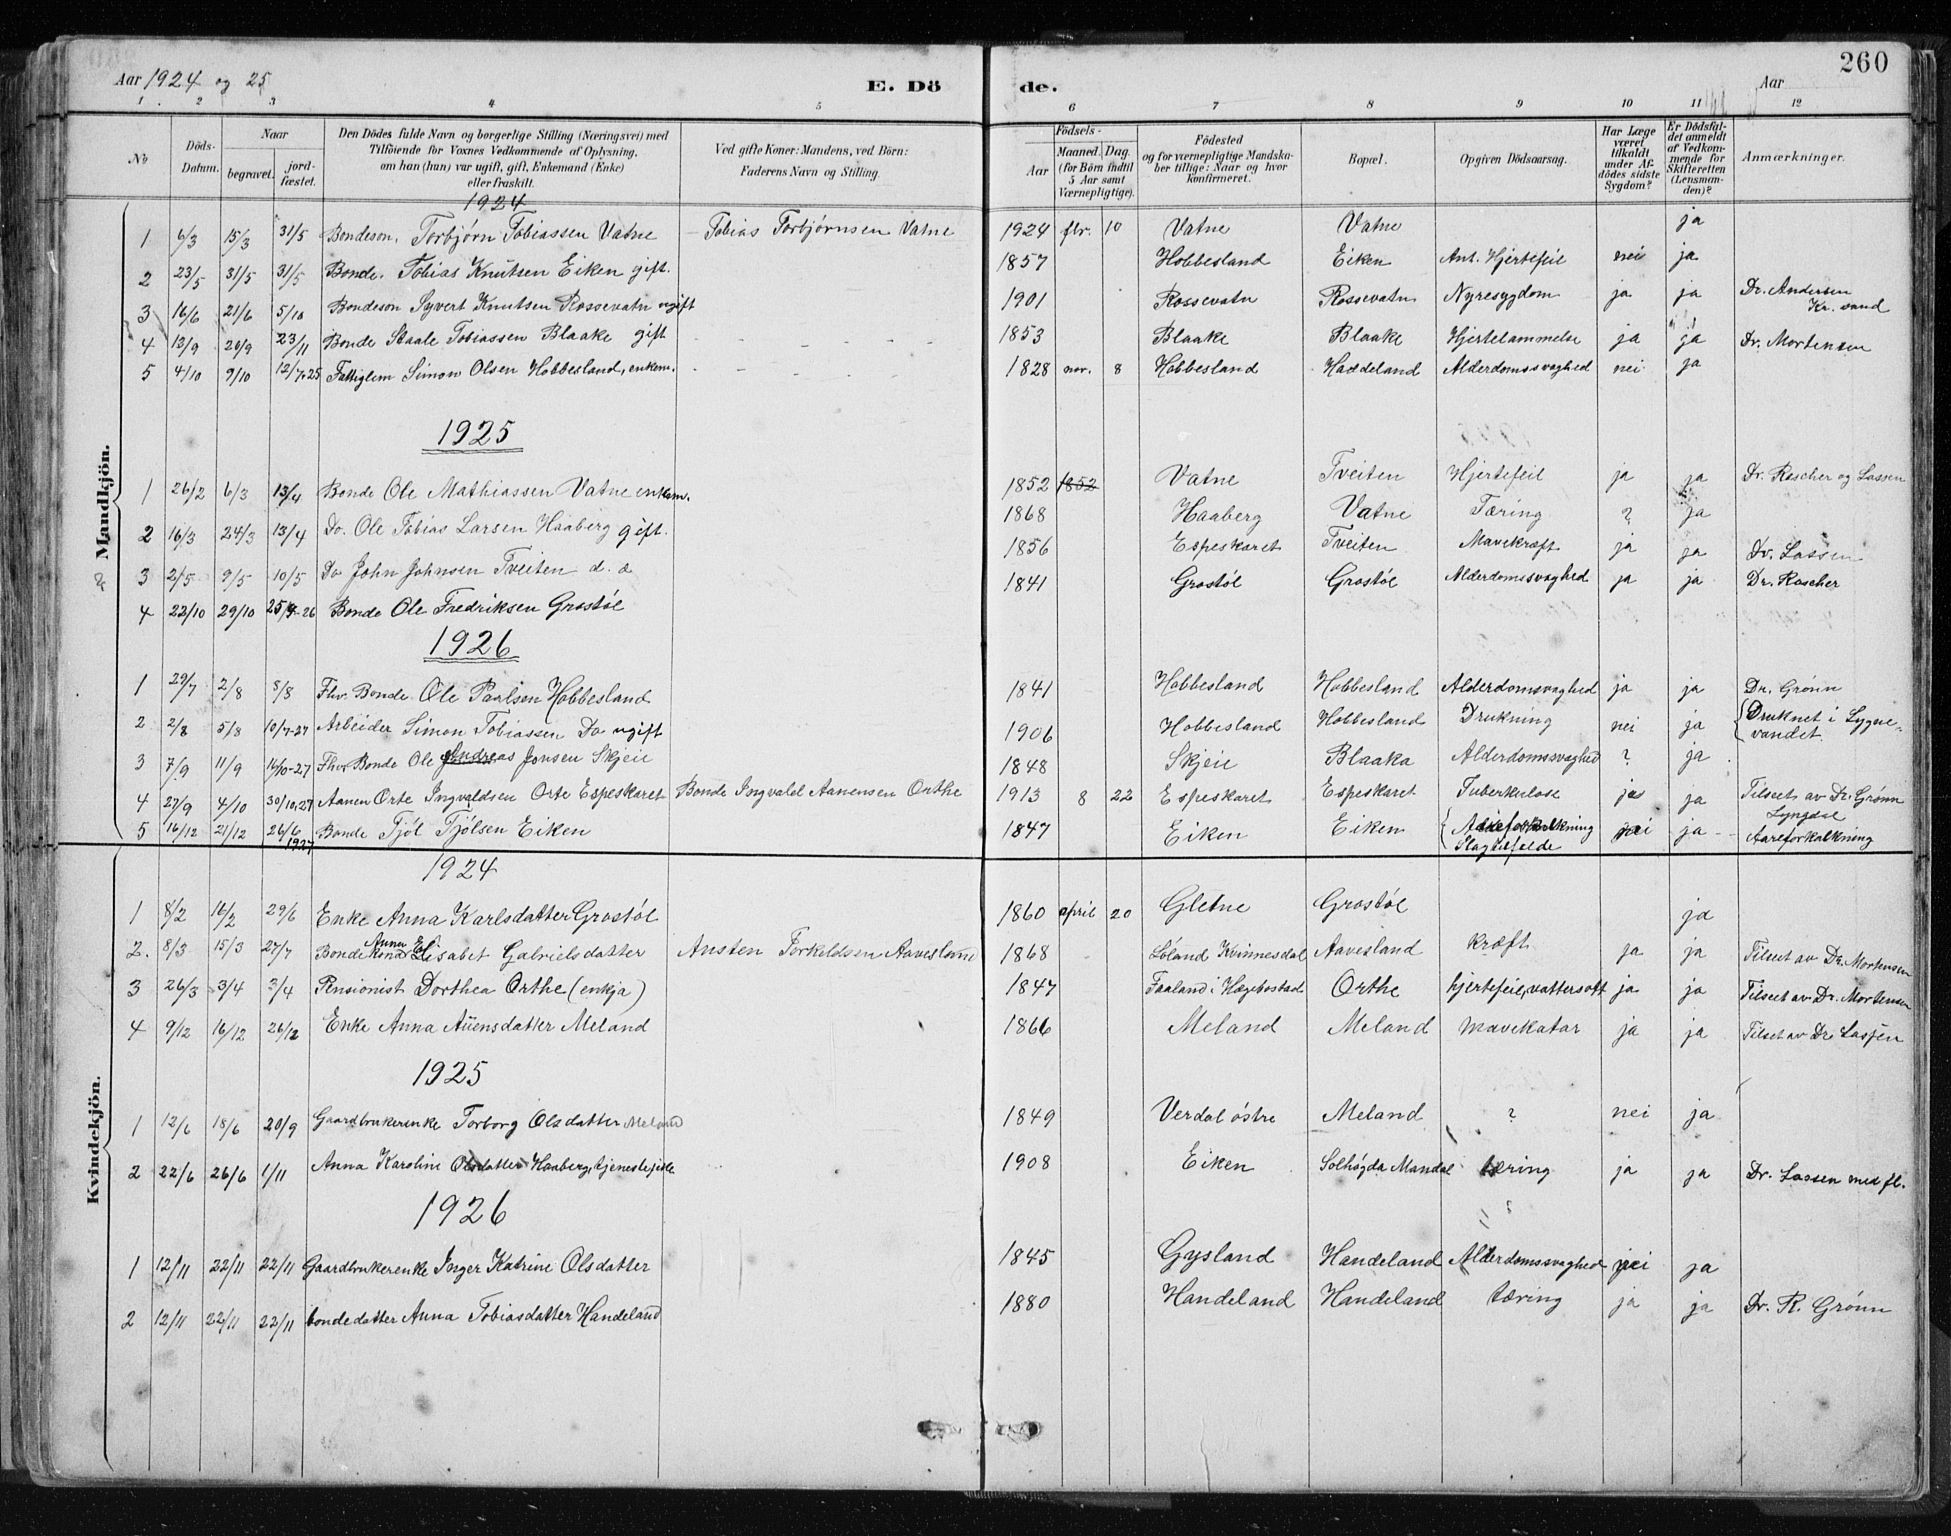 260
Aar 1924 og 25
E. Dö de.
Aar
1. 2 3 4 5 6 7 8 9 10 11 12
No
Döds-Datum.
Naar
begravet.
jordfæstet.
Den Dödes fulde Navn og borgerlige Stilling (Næringsvei) med
Tilföiende for Voxnes Vedkommende af Oplysning,
om han (hun) var ugift, gift, Enkemand (Enke)
eller fraskilt.
Ved gifte Koner: Mandens, ved Börn:
Faderens Navn og Stilling.
Födsels-
Aar
Maaned. Dag.
(for Börn indtil
5 Aar samt
Værnepligtige).
Födested
og for værnepligtige Mandska-
ber tillige: Naar og hvor
konfirmeret.
Bopæl.
Opgiven Dödsaarsag.
Har Læge
været
tilkaldt
under Af-
dödes sidste
Sygdom?
Er Dödsfal-
det anmeldt
af Vedkom-
mende for
Skifteretten
(Lensman-
den)?
Anmærkninger.
Mandkjön.
1924
1 6/3 15/3 31/5 Bondeson. Torbjørn Tobiassen Vatne Tobias Torbjørnsen Vatne 1924 fbr. 10 Vatne Vatne ja
2 23/5 31/5 31/5 Bonde. Tobias Knutsen Eiken gift. 1857 Hobbesland Eiken Ant. Hjertefeil nei ja
3 16/6 21/6 5/10 Bondeson Syvert Knutsen Rossevatn ugift 1901 Rossevatn Rossevatn Nyresygdom ja ja Dr. Andersen Kr. sand
4 13/9 20/9 23/11 Bonde Staale Tobiassen Blaake gift 1853 Blaake Blaake Hjertelammelse ja ja Dr. Mortensen
5 4/10 9/10 12/7.25 Fattiglem Simon Olsen Hobbesland, enkem. 1828 nov. 8 Hobbesland Haddeland Alderdomssvaghed nei ja
1925
1 26/2 6/3 13/4 Bonde Ole Mathiassen Vatne enkem. 1852 1852 Vatne Tveiten Hjertefeil ja ja Dr. Rascher og Lassen
2 16/3 24/3 13/4 Do. Ole Tobias Larsen Haaberg gift. 1868 Haaberg Vatne Tæring ? ja
3 2/5 9/5 10/5 Do John Johnsen Tveiten d. o 1856 Espeskaret Tveiten Mavekræft ja ja Dr. Lassen
4 22/10 29/10 25/9-26 Bonde Ole Fredriksen Grostøl 1841 Grostøl Grostøl Alderdomssvaghed ja ja Dr. Rascher
1926
1 29/7 2/8 8/8 Fhv. Bonde Ole Paalsen Hobbesland 1841 Hobbesland Hobbesland Alderdomsvaghed ja ja Dr. Grønn
2 2/8 5/8 10/7-27 Arbeider Simon Tobiassen Do ugift 1906 Hobbesland Hobbesland Drukning nei ja Druknet i Lygne-
vandet.
3 7/9 11/9 16/10-27 Fhv Bonde Ole Andreas Jonsen Skjeie 1848 Skjeie Blaaka Alderdomssvaghed ? ja
4 27/9 4/10 30/10.27 Aanen Orte Ingvaldsen Orte Espeskaret Bonde Ingvald Aanensen Orthe 1913 8 22 Espeskaret Espeskaret Tuberkulose ja ja Tilseet av Dr. Grønn
Lyngdal
5 16/12 21/12 26/6 1927 Bonde Tjøl Tjølsen Eiken 1847 Eiken Eiken Slagtilfelde nei ja Aareforkalkning
Kvindekjön.
1924
1 8/2 16/2 29/6 Enke Anna Karlsdatter Grostøl 1860 april 20 Gletne Grostøl ja
2. 8/3 15/3 27/7 Bondekona Anna Elisabet Gabrielsdatter Austen Torkeldsen Aavesland 1868 Løland Kvinnesdal Aavesland Kræft ja ja Tilseet av Dr. Mortensen
3 26/3 3/4 3/4 Pensionist Dorthea Orthe (enkja) 1847 Faaland i Hægebostad Orthe hjertefeil, vattersott ja ja Tilseet av Dr. Mortensen
4 9/12 16/12 26/12 Enke Anna Auensdatter Meland 1866 Meland Meland Mavekatar ja ja Tilseet av Dr. Lassen
1925
1 12/6 18/6 20/9 Gaardbrukerenke Torborg Olsdatter Meland 1849 Verdal østre Meland ? nei ja
2 22/6 26/6 1/11 Anna Karoline Olsdatter Haaberg, tjenestejente 1908 Eiken Solhøgda Mandal tæring ja ja Dr. Lassen med fl.
1926
1 12/11 22/11 22/11 Gaardbrukerenke Inger Katrine Olsdatter 1845 Gysland Handeland Alderdomssvaghed nei ja
2 12/11 22/11 22/11 bondedatter Anna Tobiasdatter Handeland 1880 Handeland Handeland tæring ja ja Dr. R. Grønn